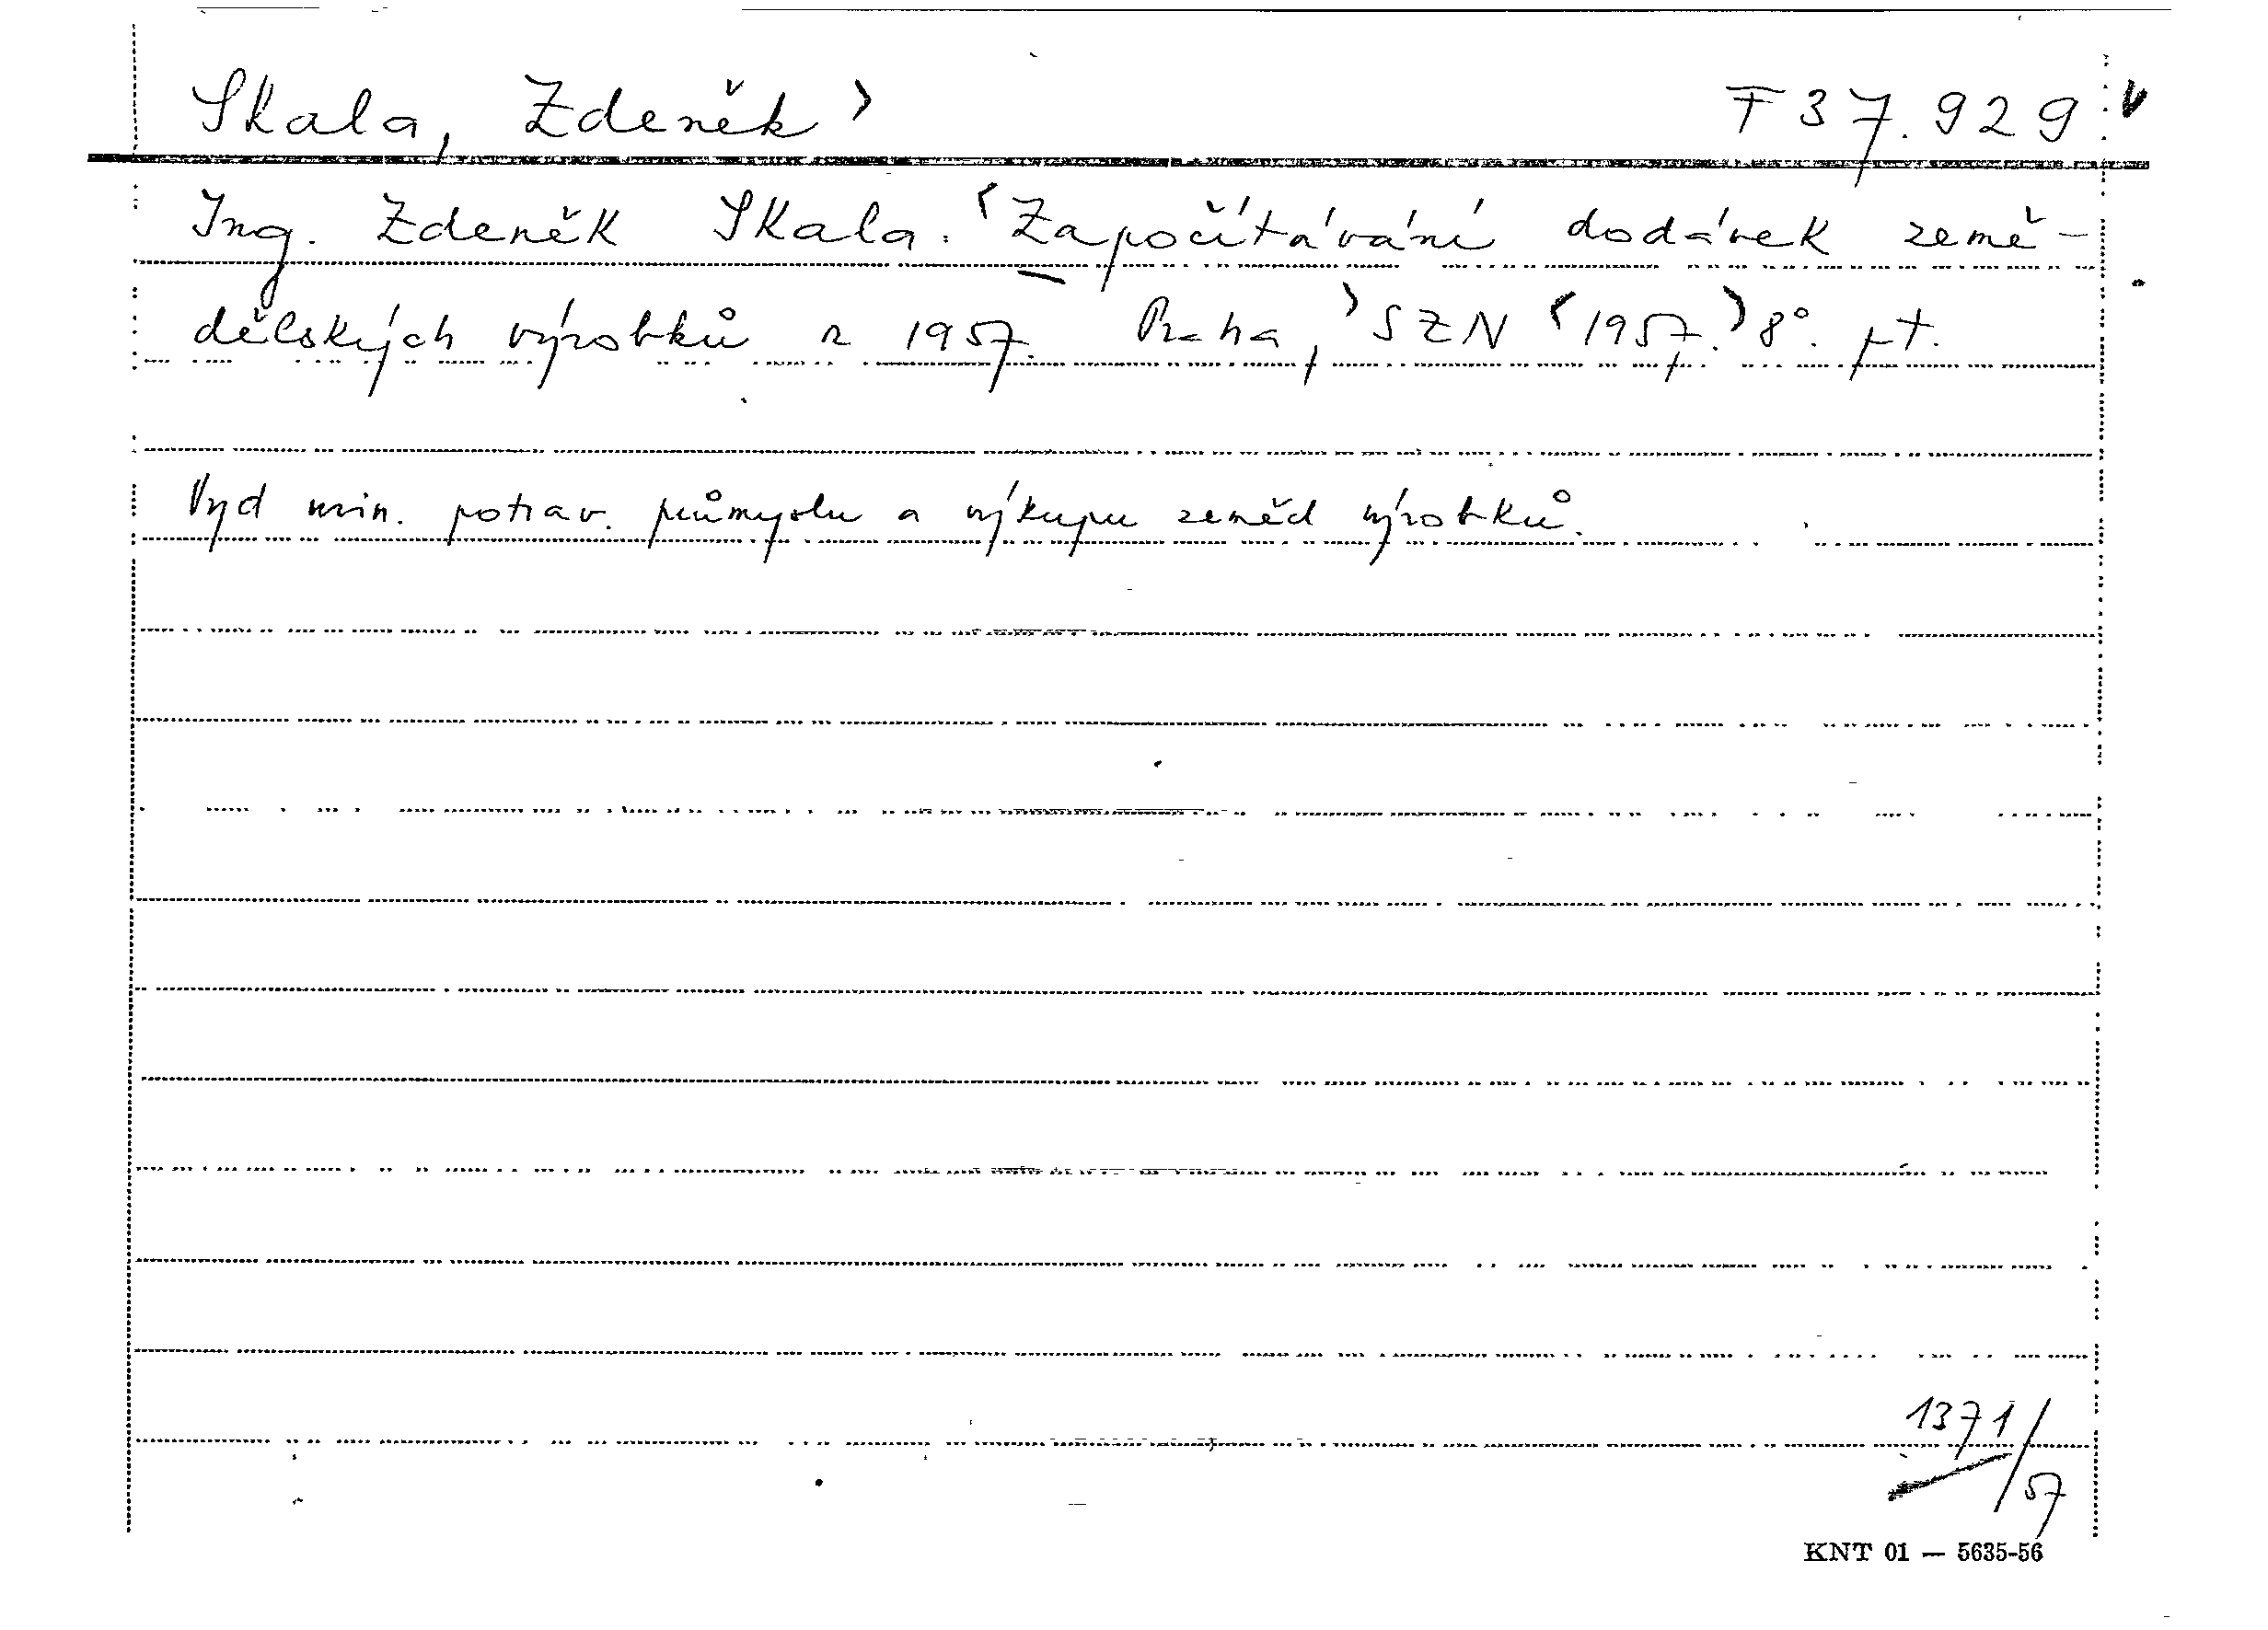 Skala, Zdeněk > F 37.929 v
Ing. Zdeněk Skala: <Započítávání dodávek země-
dělských výrobků r 1957. Praha, >SZN <1957.> 8°. pt.
Vyd min. potrav. průmyslu a výkupu zeměd výrobků.
1371/57
KNT 01 — 5635-56